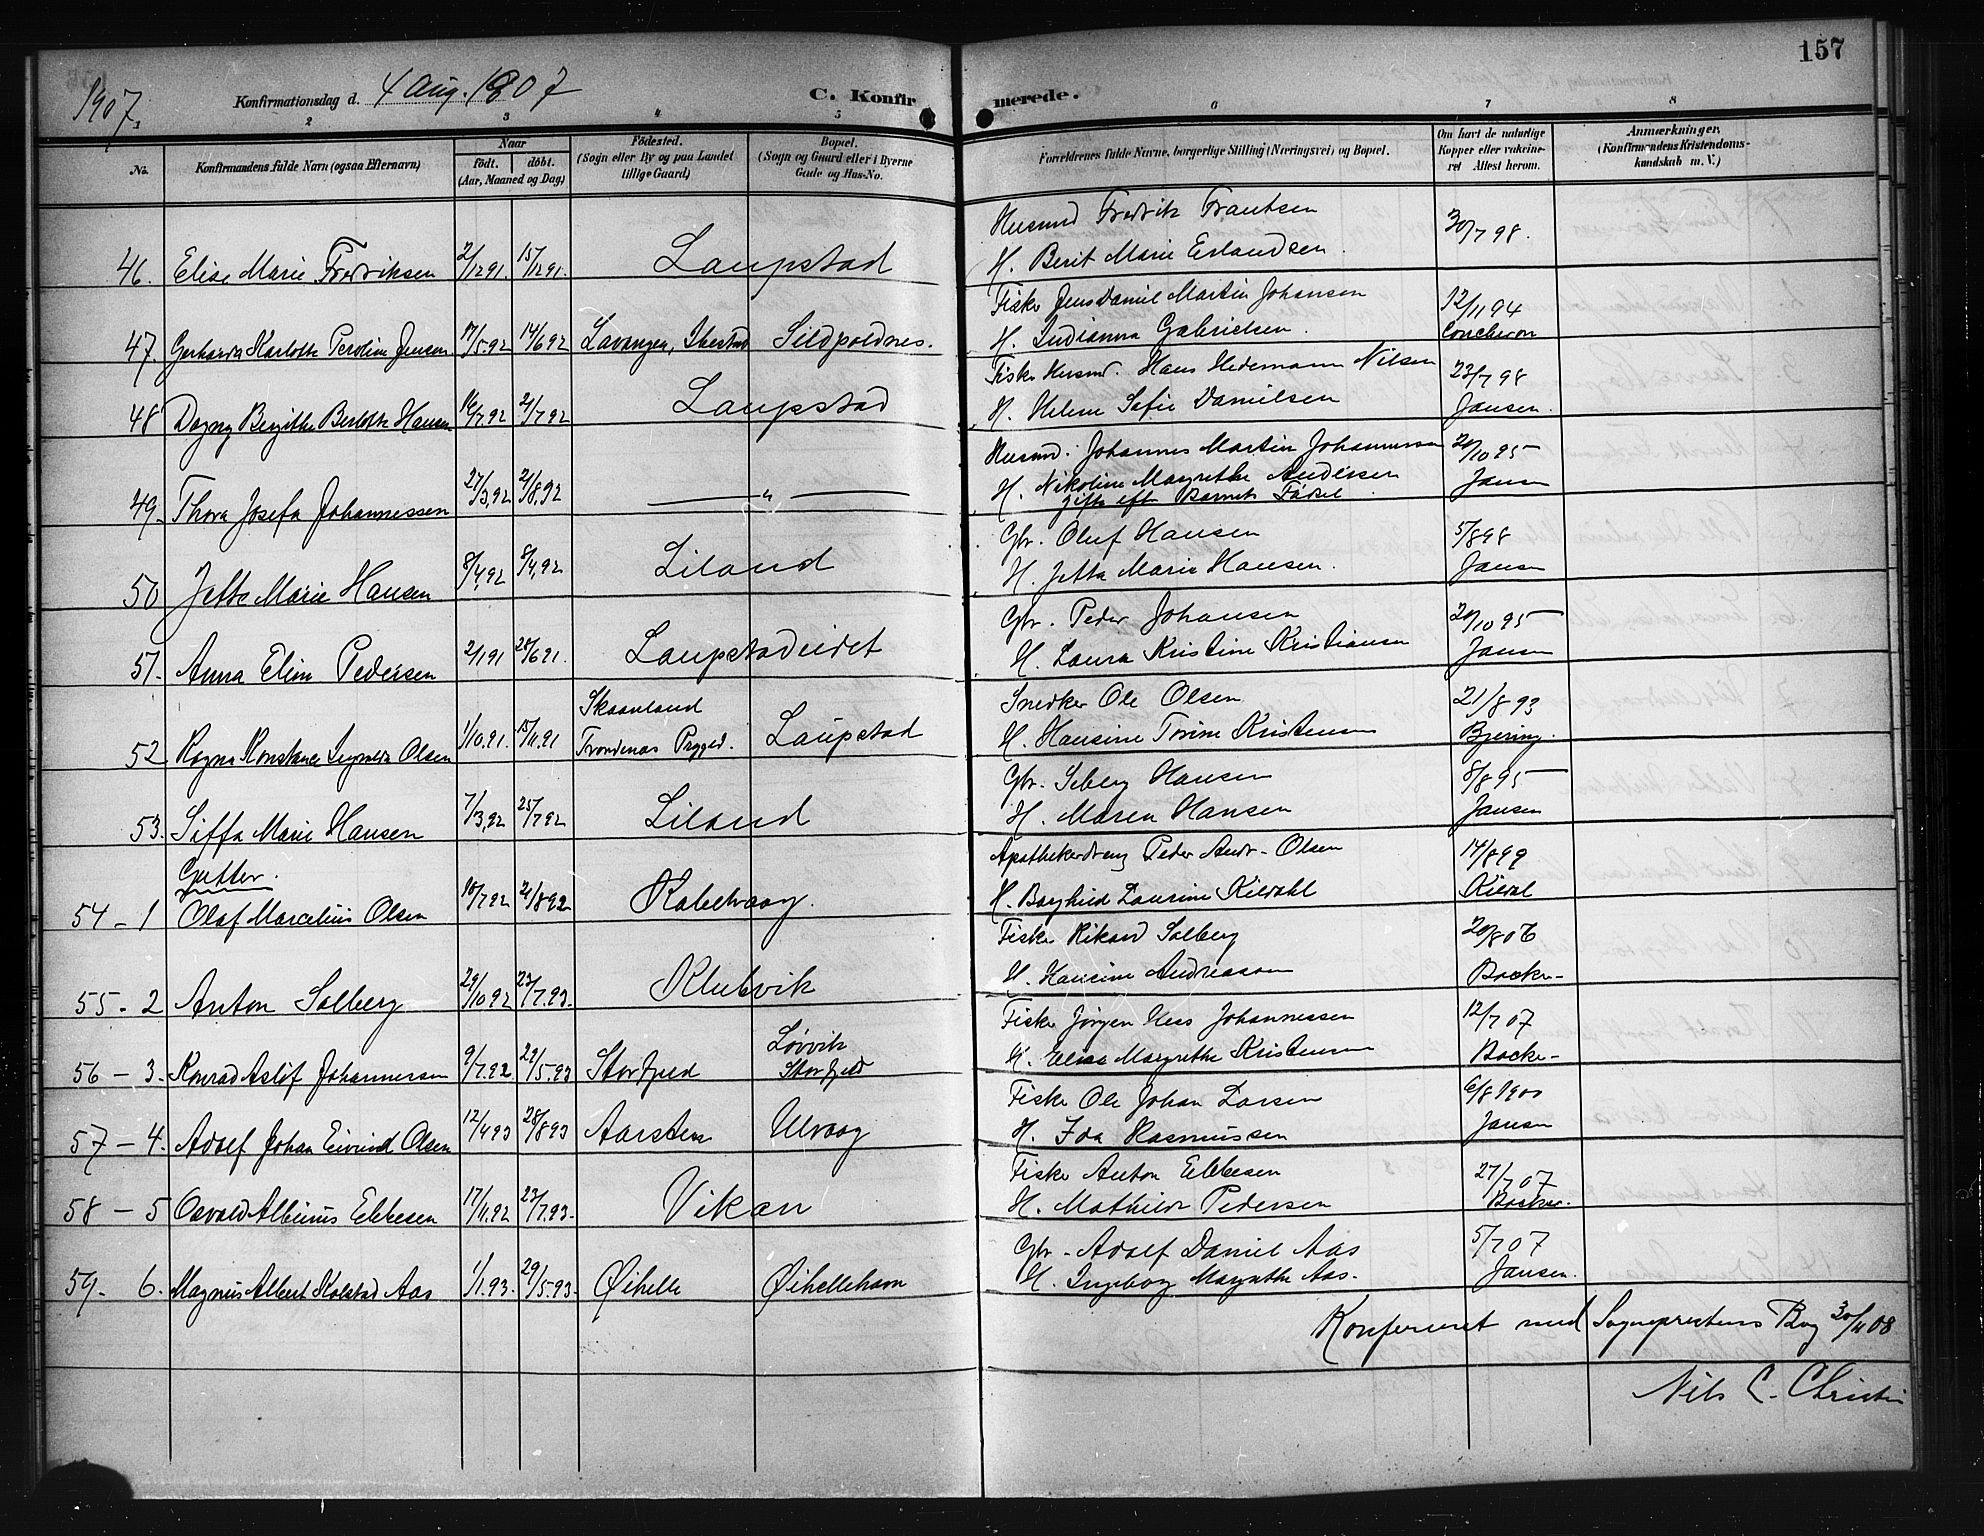 157
1907.
Konfirmationsdag d. 4 Aug. 1907
C. Konfirmerede.
1 2 3 4 5 6 7 8
No.
Konfirmandens fulde Navn (ogsaa Efternavn)
Naar
født. døbt.
(Aar, Maaned og Dag)
Fødested.
(Sogn eller By og paa Landet
tillige Gaard)
Bopæl.
(Sogn og Gaard eller i Byerne
Gade og Hus-No.
Forældrenes fulde Navne, borgerlige Stilling (Næringsvei) og Bopæl.
Om havt de naturlige
Kopper eller vakcine-
ret Attest herom.
Anmærkninger,
(Konfirmandens Kristendoms-
kundskab m. V.)
46. Elise Marie Fredriksen 2/12 91. 15/12 91. Laupstad
Husmd Fredrik Frantsen
H. Berit Marie Erlandsen.
30/7 98.
47. Gerharda Karlotte Peroline Jensen 17/5.92 14/6 92 Lavangen, Ibestad Sildpoldnes.
Fisker Jens Daniel Martin Johansen
H. Indianna Gabrielsen.
12/11 94
Concheron
48 Dagny Bergitte Berlotte Hansen 16/7.92 21/7.92 Laupstad
Fisker Husmd. Hans Hedemann Nilsen
H. Helene Sofie Danielsen
23/7 98
Jansen.
49. Thora Josefa Johannessen 27/3,92 21/8,92 — " —
Husmd. Johannes Martin Johannessen
H. Nikoline Margrethe Andersen
gifte eft Barnets Fødsel.
20/10 95
Jansen
50 Jette Marie Hansen 8/4,92 8/4,92 Liland
Gbr. Oluf Hansen
H. Jetta Marie Hansen.
5/8 98
Jansen
51. Anna Eline Pedersen 2/1 91 28/6 91. Laupstadeidet
Gbr. Peder Johansen
H. Laura Kristine Kristiansen
20/10 95
Jansen
52 Ragna Konstance Ingvalda Olsen 1/10.91. 15/11.91 Skaanland
Trondenæs Prgjed. Laupstad
Snedker Ole Olsen
H. Hansine Torine Kristensen
21/8 93
Bjering.
53. Siffa Marie Hansen 7/3,92 25/7 92 Liland
Gbr. Seberg Hansen
H. Maren Hansen
8/8 95
Jansen
Gutter.
54 - 1 Olaf Marcelius Olsen 10/7 92 21/8 92 Kabelvaag.
Apothekerdreng Peder Andr. Olsen
H. Borghild Laurine Kildahl
14/8 99
Kildal
55 - 2 Anton Solberg 29/10 92 23/7.93. Klubvik
Fisker Rikard Solberg
H. Hansine Andreassen
20/8 06
Bocke-
56 - 3. Konrad Asløf Johannessen 9/7.92 29/5.93 Storfjeld Løvvik
Storfjeld
Fisker Jørgen Hess Johannessen
H. Elisa Margrethe Kristensen
12/7 07
Bocke-
57 - 4. Adolf Johan Eivind Olsen 12/4 93 28/8 93 Aarsten Ulvaag
Fisker Ole Johan Larsen
H. Ida Rasmussen
6/8 1900
Jansen
58 - 5 Osvald Albinus Ebbesen 17/11.92 23/7.93. Vikan
Fisker Anton Ebbesen
H. Mathilda Pedersen
27/7 07
59. - 6. Magnus Albert Kolstad Aas 1/1.93. 29/5.93. Øihelle Øihellehavn
Gbr - Adolf Daniel Aas
H. Ingeborg Margrethe Aas.
5/7 07
Jansen.
Konfereret med Sogneprestens Bog 30/11 08
Nils C. Christi